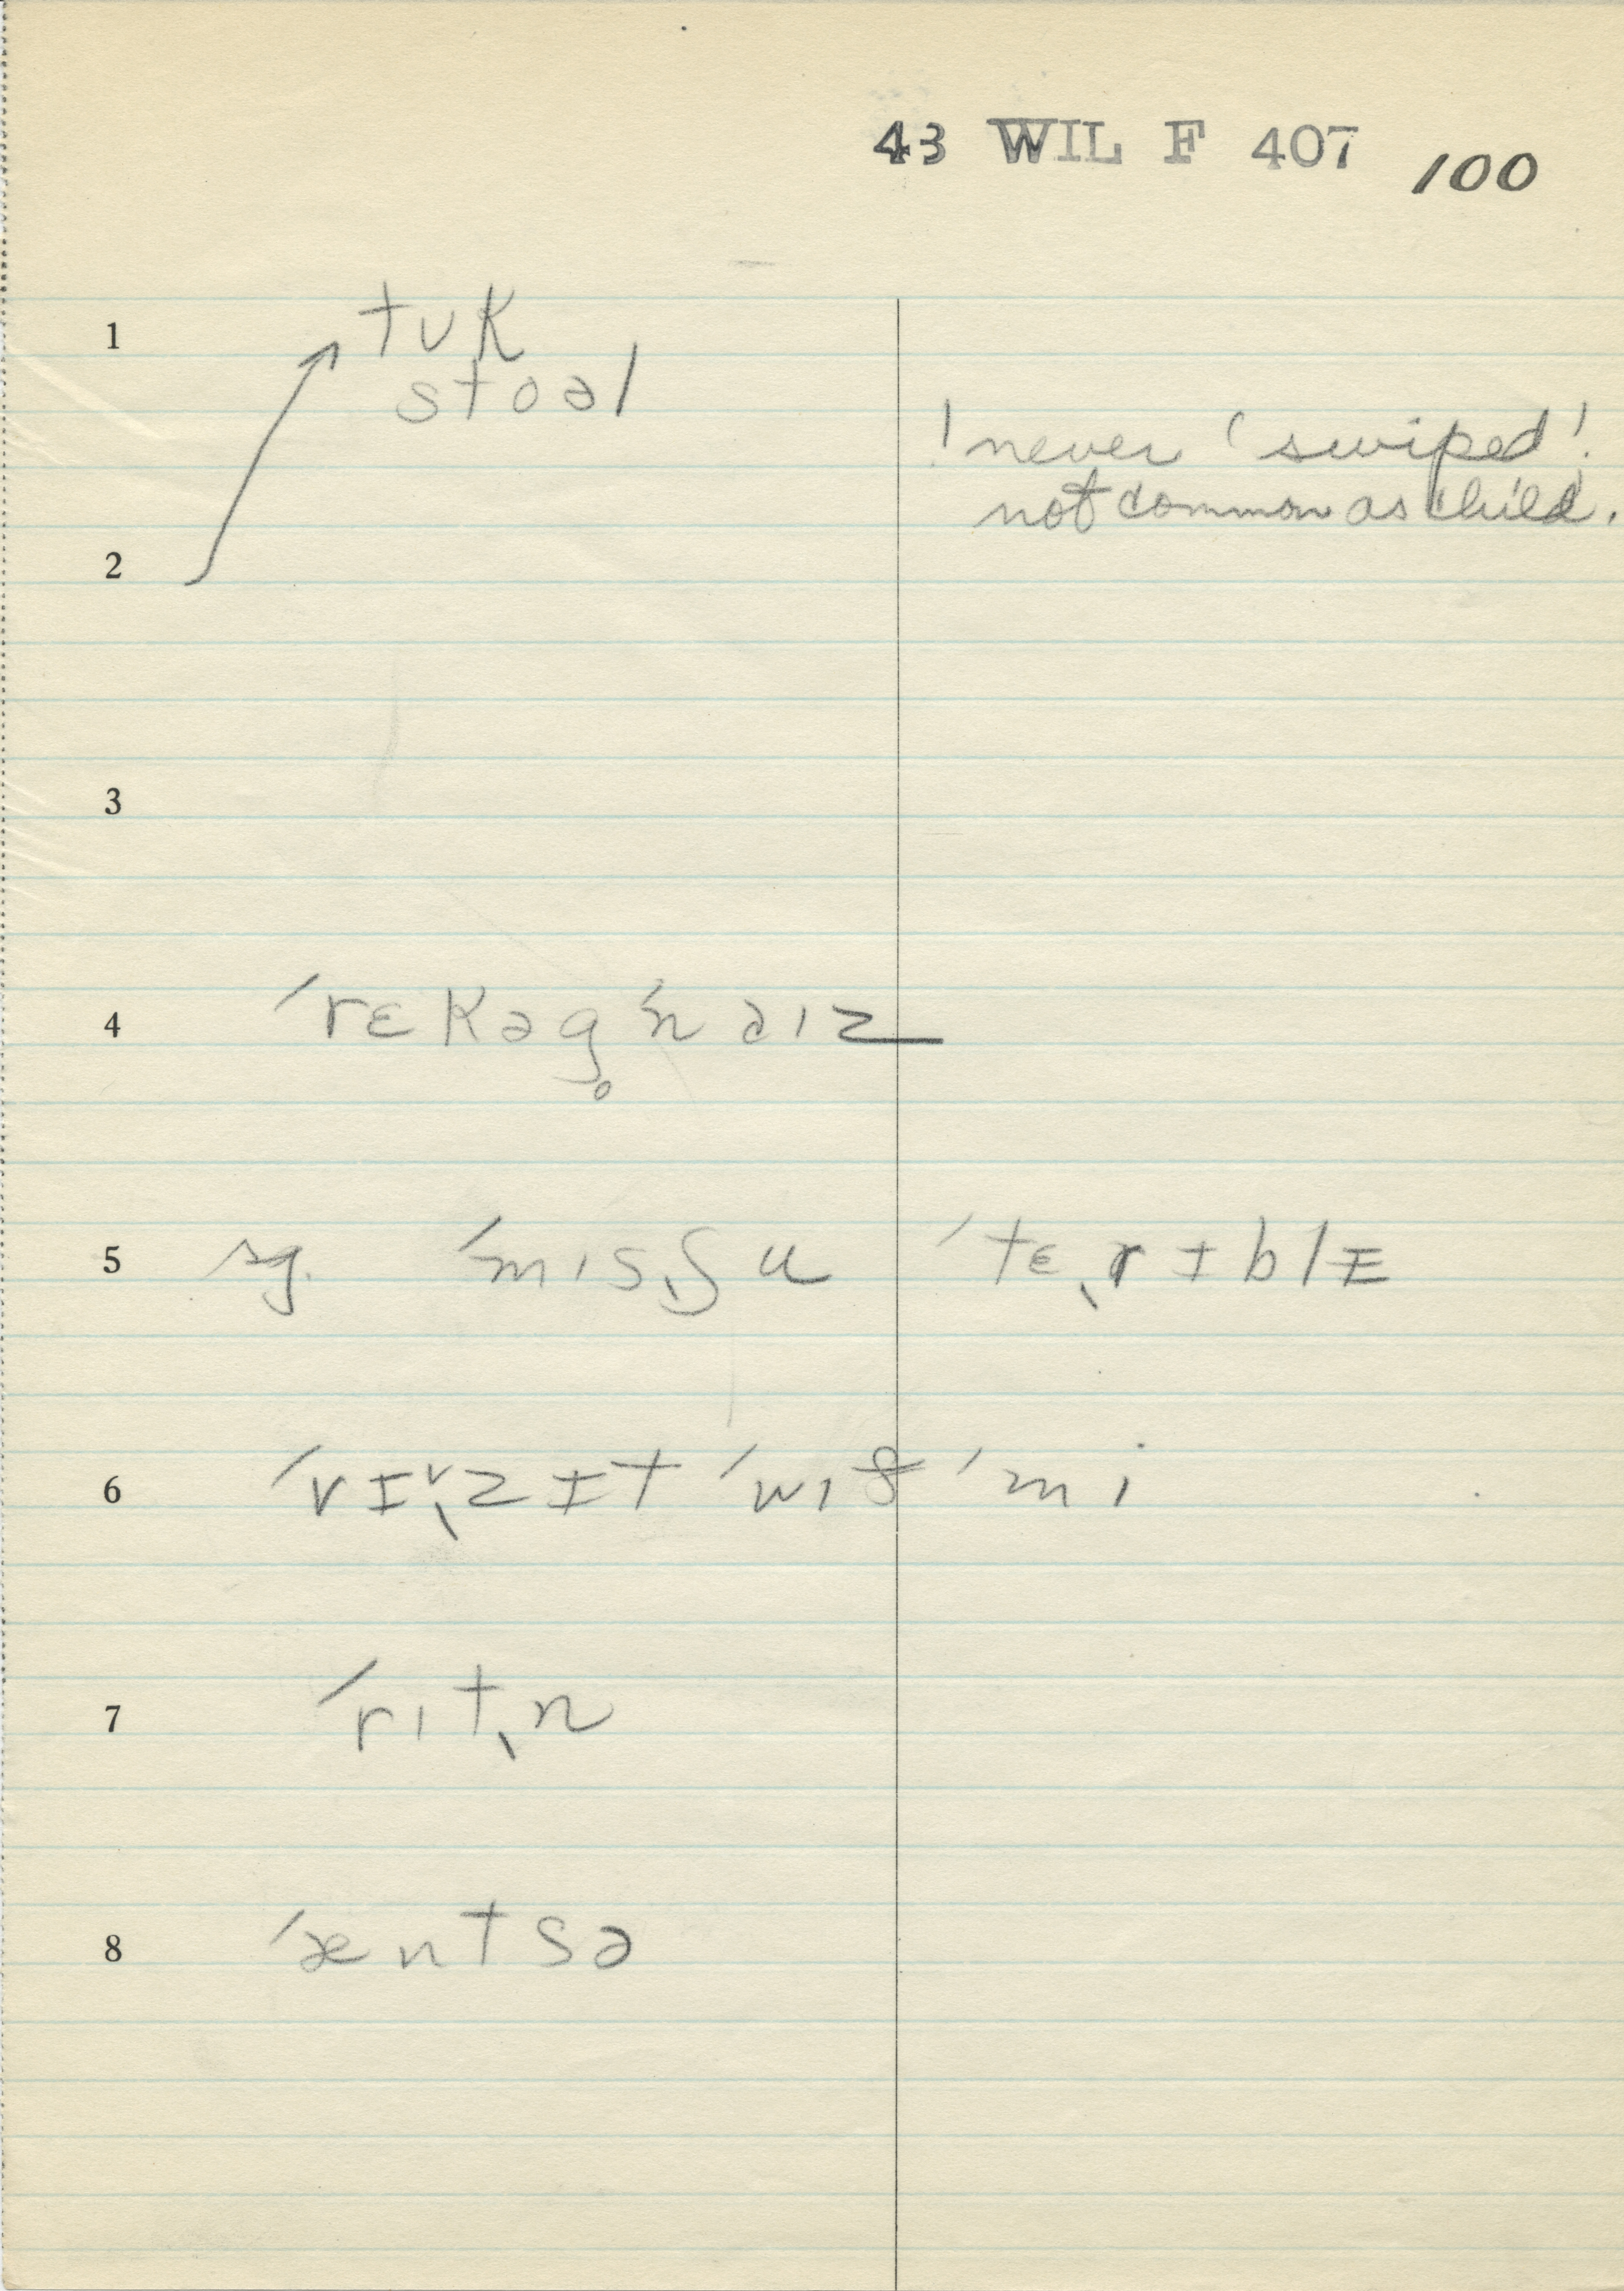 43 WIL F 407 100
1 tʊk
stoəl
! never 'swiped'!
not common as child.
2
3
4 ˊrɛkəg̥ˊnaɪz
5 sg. ˊmɪsˎʃu ˊtɛˎrɨblɨ
6 ˊvɨˎzɨt ˊwɪð ˊmi
7 ˊrɪtˎn
8 ˊæntsə